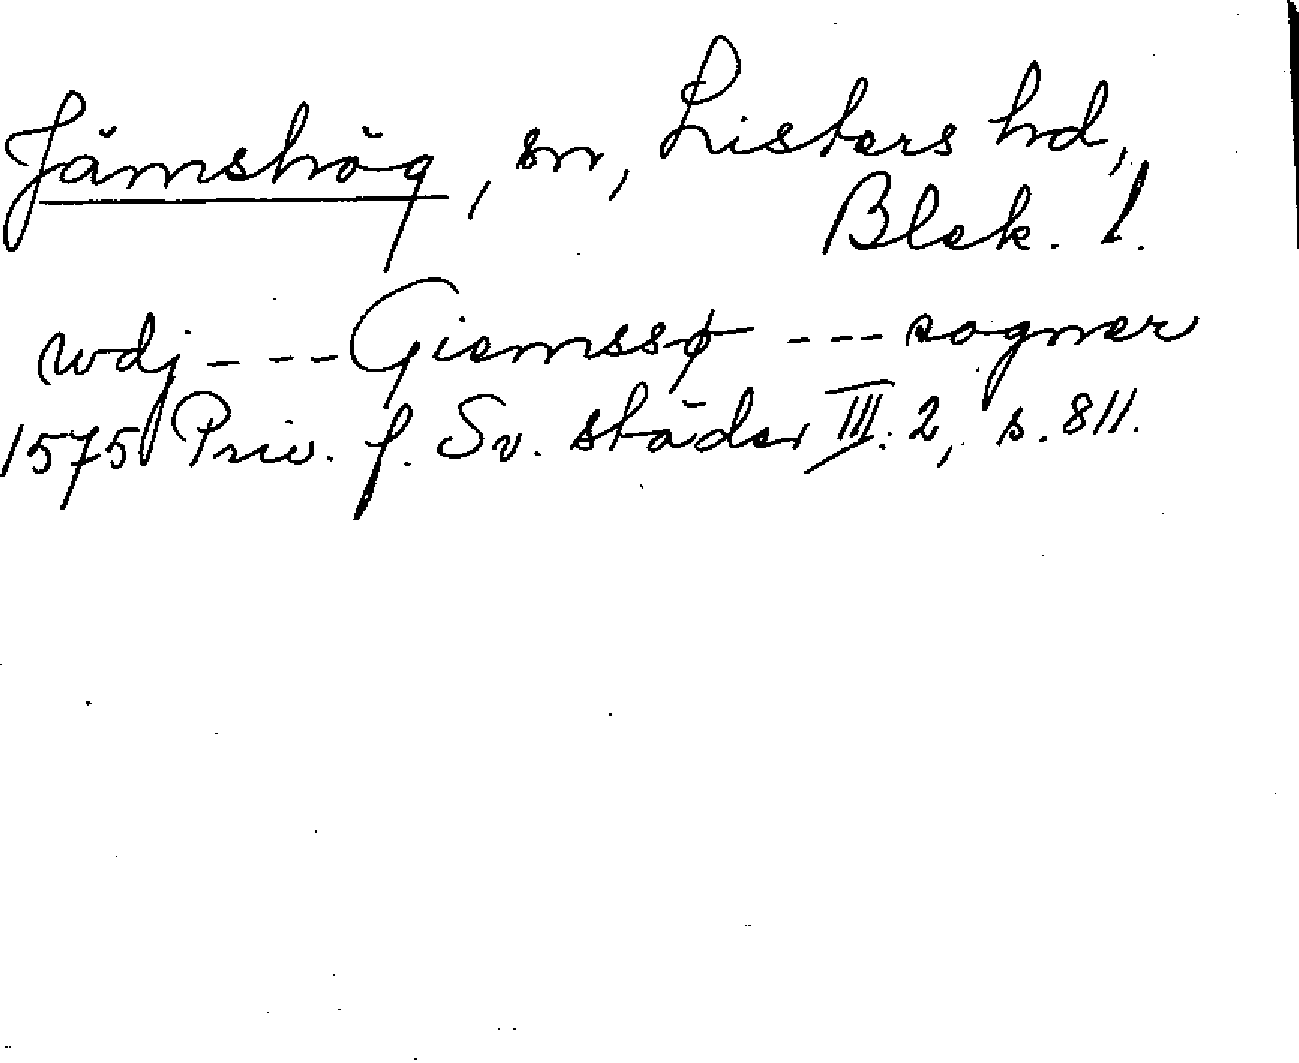 Jämshög, sn, Listers hd,
Blek. l.
wdj---Giemssø---sogner
1575 Priv. f. Sv. städer III: 2, s. 811.